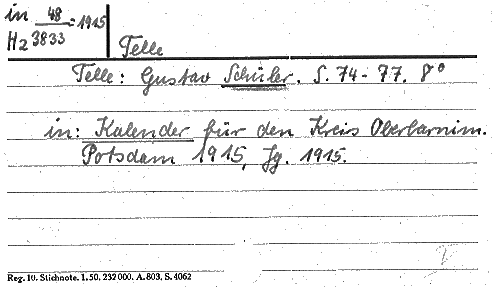 in 48 = 1915
H2 3833
Telle
Telle: Gustav Schüler. S. 74-77. 8°
in: Kalender für den Kreis Oberbarnim.
Potsdam 1915, Jg. 1915.
Reg. 10. Stichnote. 1.50, 232000. A. 803, S. 4062